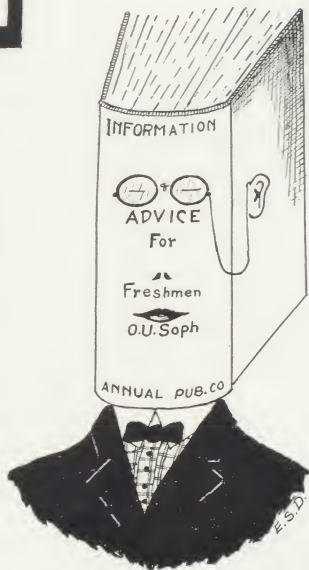 INFORMATION
ADVICE
For
Freshmen
O.U. Soph
ANNUAL PUB. CO
E.S.D.